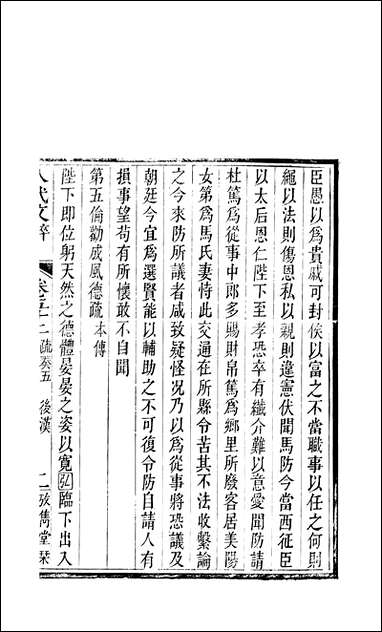 臣愚以爲貴戚可封侯以富之不當職事以任之何則
繩以法則傷恩私以親則違憲伏聞馬防今當西征臣
以太后恩仁陛下至孝恐卒有纖介難以意愛聞防請
杜篤爲從事中郎多賜財帛篤爲鄉里所廢客居美陽
女第爲馬氏妻恃此交通在所縣令苦其不法收繫論
之今來防所議者咸致疑怪況乃以爲從事將恐議及
朝廷今宜爲選賢能以輔助之不可復令防自請人有
損事望苟有所懷敢不自聞
第五倫勸成風德疏本傳
陛下卽位躬天然之德體晏晏之姿以寬弘臨下出入
八代文粹
卷五十二 疏奏五 後漢 二 攷雋堂栞